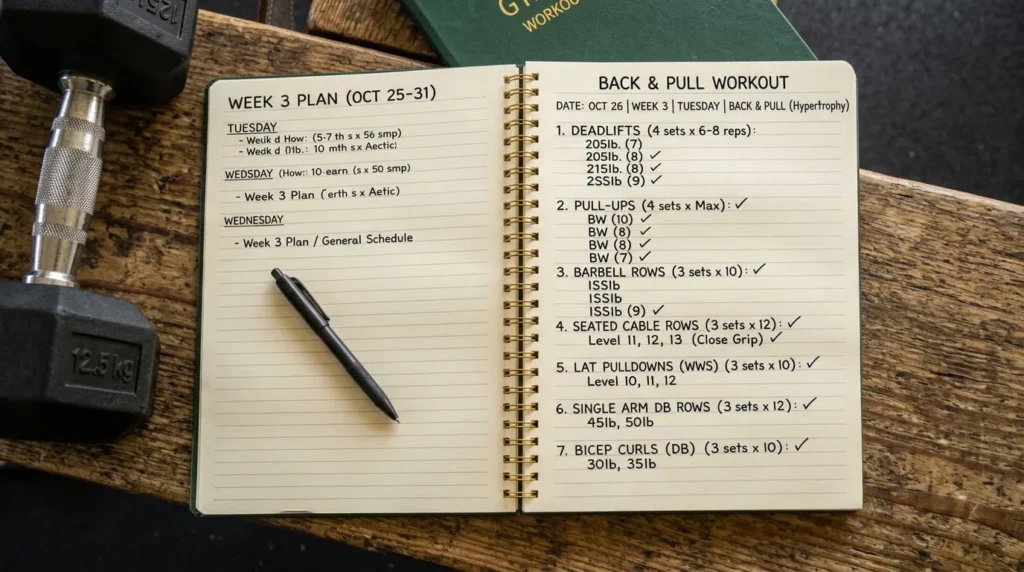 WORKOU
WEEK 3 PLAN (OCT 25-31)
TUESDAY
- Weuk d How: (5-7 th s x 56 smp)
- Wedk d (1lb.: 10 mth s x Aectic)
WEDSDAY (How: 10-earn (s x 50 smp)
- Week 3 Plan (erth s x Aetic)
WEDNESDAY
- Week 3 Plan / General Schedule
BACK & PULL WORKOUT
DATE: OCT 26 | WEEK 3 | TUESDAY | BACK & PULL (Hypertrophy)
1. DEADLIFTS (4 sets x 6-8 reps):
205lb. (7)
205lb. (8) ✓
215lb. (8) ✓
2SSlb (9) ✓
2. PULL-UPS (4 sets x Max): ✓
BW (10) ✓
BW (8) ✓
BW (8) ✓
BW (7) ✓
3. BARBELL ROWS (3 sets x 10): ✓
ISSlb
ISSlb
ISSlb (9) ✓
4. SEATED CABLE ROWS (3 sets x 12): ✓
Level 11, 12, 13 (Close Grip) ✓
5. LAT PULLDOWNS (WWS) (3 sets x 10): ✓
Level 10, 11, 12
6. SINGLE ARM DB ROWS (3 sets x 12): ✓
45lb, 50lb
7. BICEP CURLS (DB) (3 sets x 10): ✓
30lb, 35lb
12.5 kg